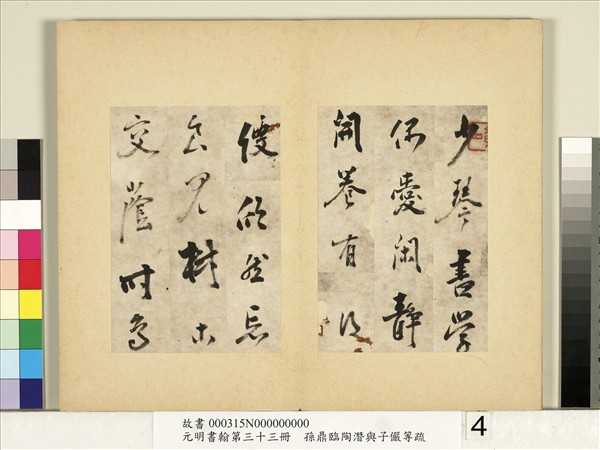 少琴書學
偶愛閑靜
開卷有得
便欣然忘
食見樹木
交蔭時鳥
故書 000315N000000000
元明書翰第三十三冊 孫鼎臨陶潛與子儼等疏
4